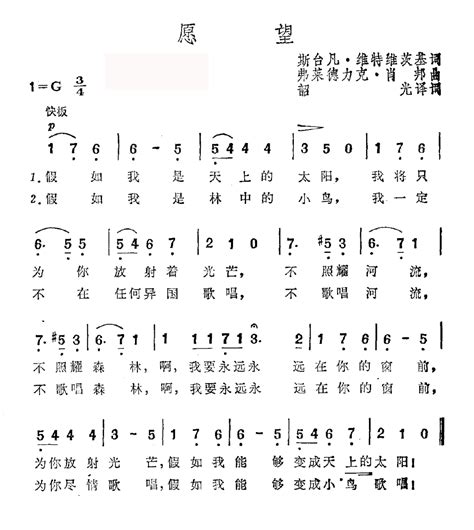 愿 望
斯台凡·维特维茨基词
弗莱德力克·肖 邦曲
韶 光译词
1=G 3/4
快板
p
1 7 6 | 6 - 5 | 5 4 4 4 | 3 5 0 | 1 7 6 |
1.假 如 我 是 天上的 太 阳， 我 将 只
2.假 如 我 是 林中的 小 鸟， 我 一 定
6. 5 5 | 5 4 6 7 | 2 1 0 | 7. #5 3 | 6. 7 1 |
为 你 放射着 光 芒， 不 照耀 河 流，
不 在 任何异国 歌 唱， 不 歌唱 河 流，
7. #5 3 | 6. 7 1 | 1 1 7 1 3. | 2 1 7 | 6 7 6 | 6 - 5 |
不 照耀 森 林，啊，我要永远永 远 在 你 的 窗 前，
不 歌唱 森 林，啊，我要永远永 远 在 你 的 窗 前，
5 4 4 4 | 3 - 5 | 1 7 6 | 6 - 5 | 5 4 4 4 | 1 7 0 ‖
为你放射 光 芒，假 如 我 能 够 变成天上的太阳！
为你尽情 歌 唱，假 如 我 能 够 变成小 鸟 歌唱！